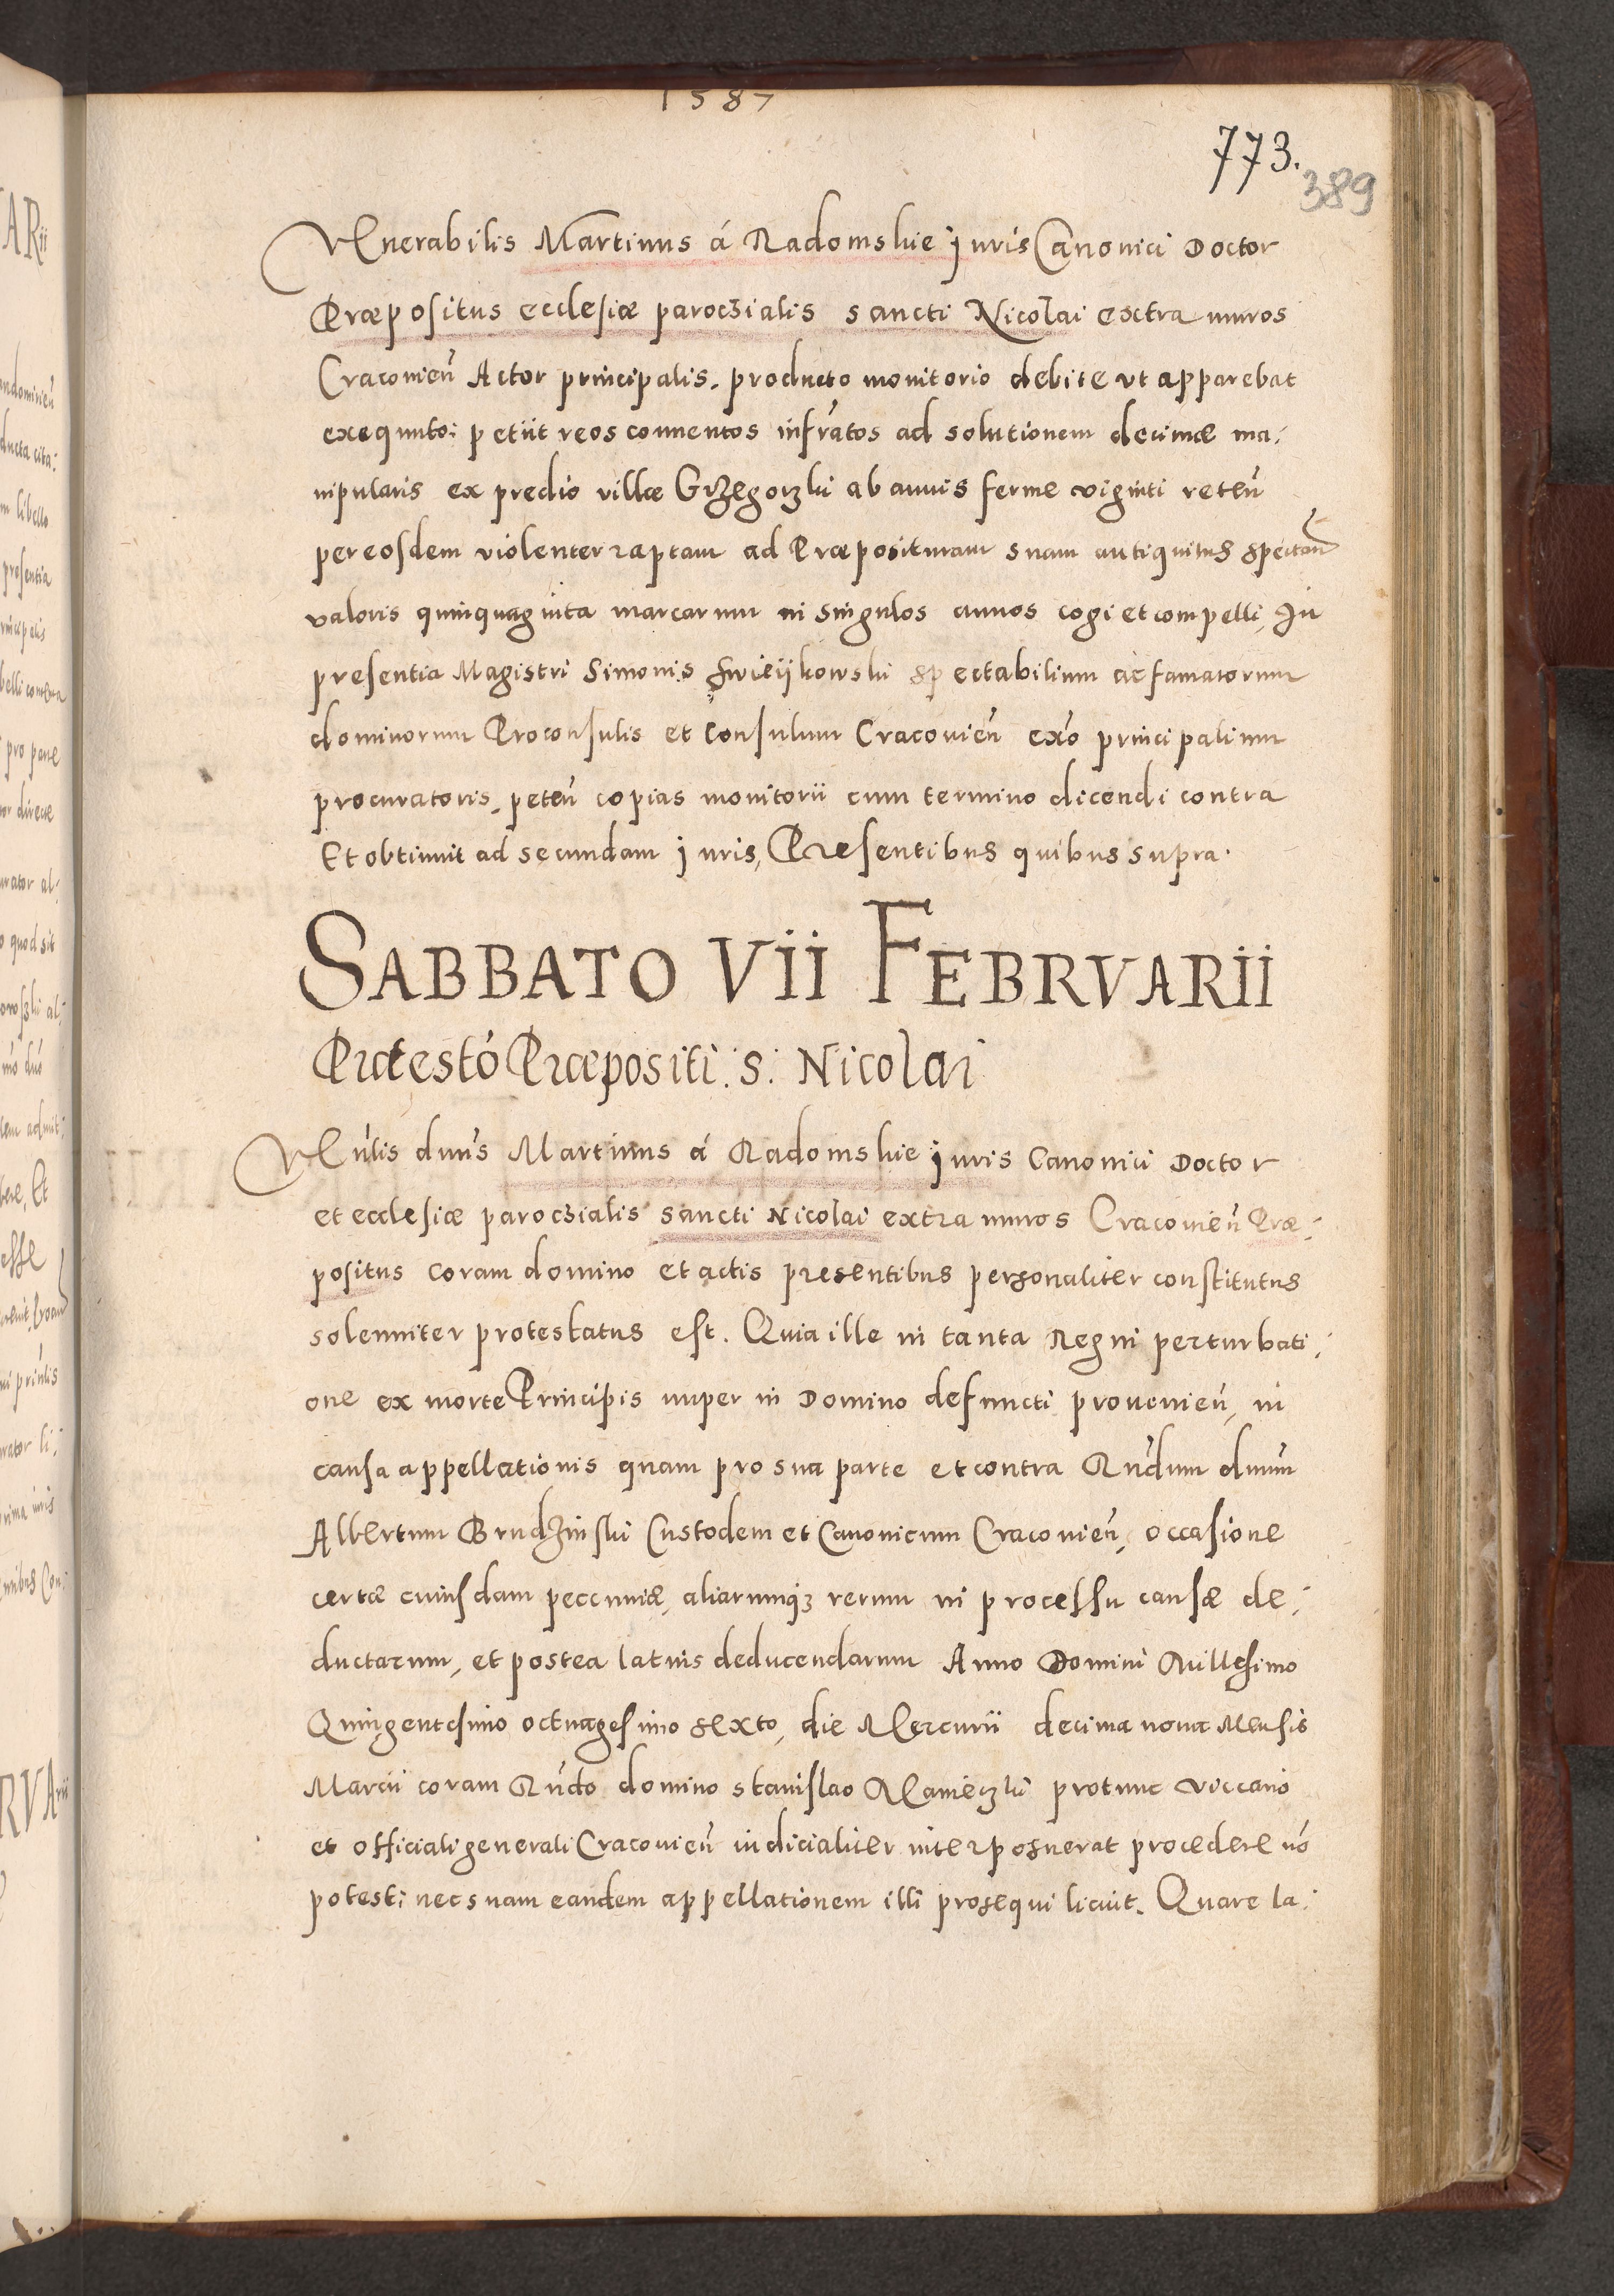 1587
773.
389
Venerabilis Martinus á Radomskie iuris Canonici Doctor
Præpositus ecclesiæ paroczialis sancti Nicolai extra muros
Cracouień Actor principalis. producto monitorio debite vt apparebat
exequuto: petiit reos conuentos infratos ad solutionem decimæ ma:
nipularis ex predio villæ Grzegorzki ab annis ferme viginti reteń
per eosdem violenter raptam ad Præposituram suam antiquitus spectań
valoris quinquaginta marcarum in singulos annos cogi et compelli, In
presentia Magistri Simonis spectabilium ac famatorum
dominorum Proconsulis et Consulum Cracouień exo principalium
procuratoris, peteń copias monitorii cum termino dicendi contra
Et obtinuit ad secundam iuris, Presentibus quibus supra.
SABBATO VII FEBRVARII
Protestó Præpositi. S. Nicolai
Veńlis dnus Martinus á Radomskie iuris Canonici Doctor
et ecclesiæ paroczialis sancti Nicolai extra muros Cracouień Præ:
positus coram domino et actis presentibus personaliter constitutus
solenniter protestatus est. Quia ille in tanta Regni perturbati:
one ex morte Principis nuper in Domino defuncti prouenień, in
causa appellationis quam pro sua parte et contra Rńdum dnum
Albertum Brudzinski Custodem et Canonicum Cracouień, occasione
certæ cuiusdam peccuniæ, aliarumq3 rerum in processu causæ de:
ductarum, et postea latius deducendarum Anno Domini Millesimo
Quingentesimo octuagesimo sexto, die Mercurii decima nona Mensis
Marcii coram Rńdo domino Stanislao protunc viccario
et officiali generali Cracouień iudicialiter interposuerat procedere nó
potest: nec suam eandem appellationem illi prosequi licuit. Quare la: